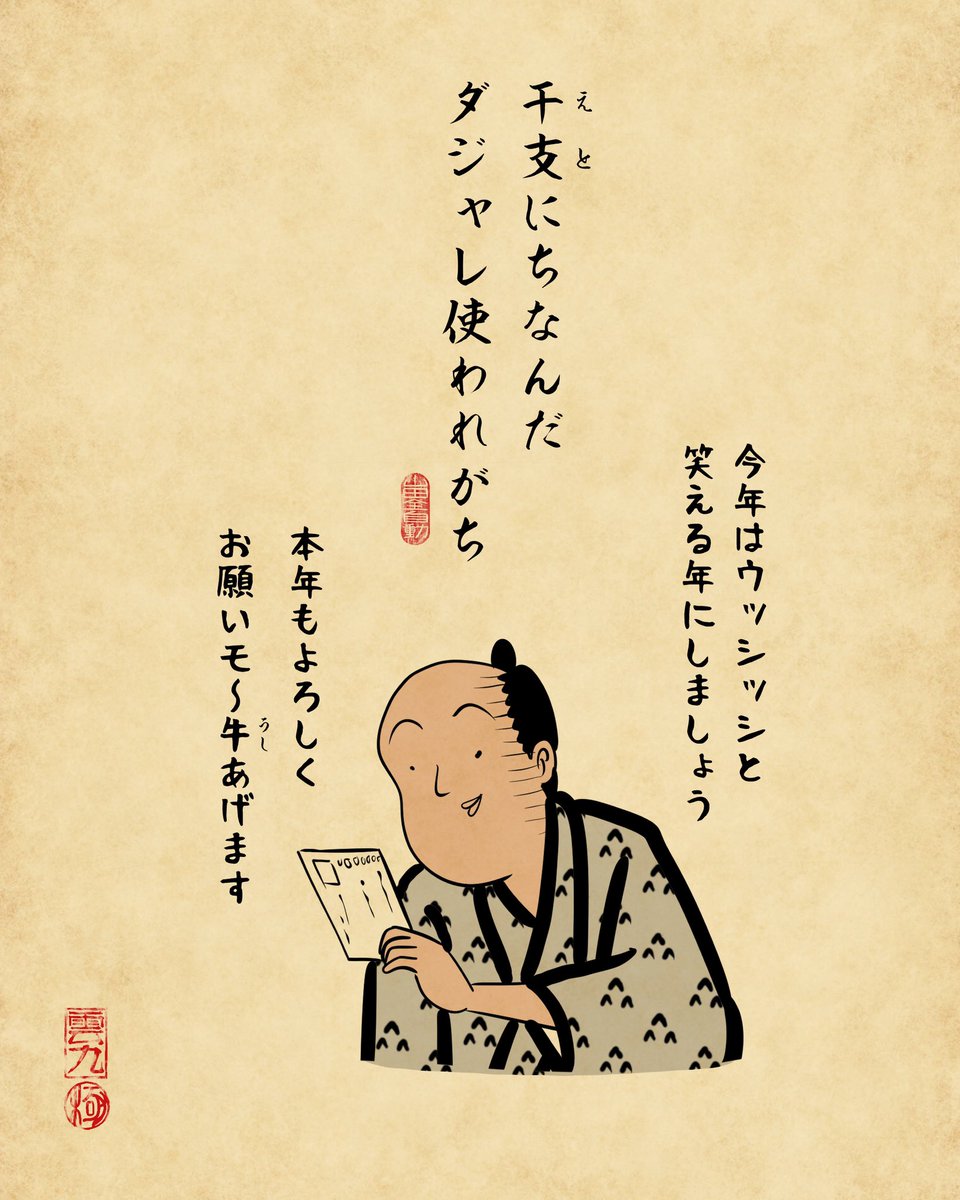 干支にちなんだ
えと
ダジャレ使われがち
今年はウッシシッシと
笑える年にしましょう
本年もよろしく
お願いモ〜牛あげます
うし